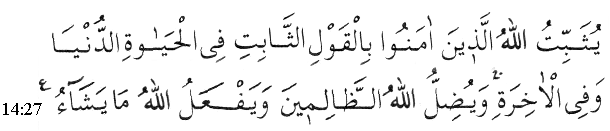 يُثَبِّتُ اللهُ الَّذِينَ اٰمَنُوا بِالْقَوْلِ الثَّابِتِ فِى الْحَيٰوةِ الدُّنْيَا
وَفِى الْاٰخِرَةِ ۚ وَيُضِلُّ اللهُ الظَّالِمِينَ وَيَفْعَلُ اللهُ مَا يَشَآءُ ࣖ 14:27